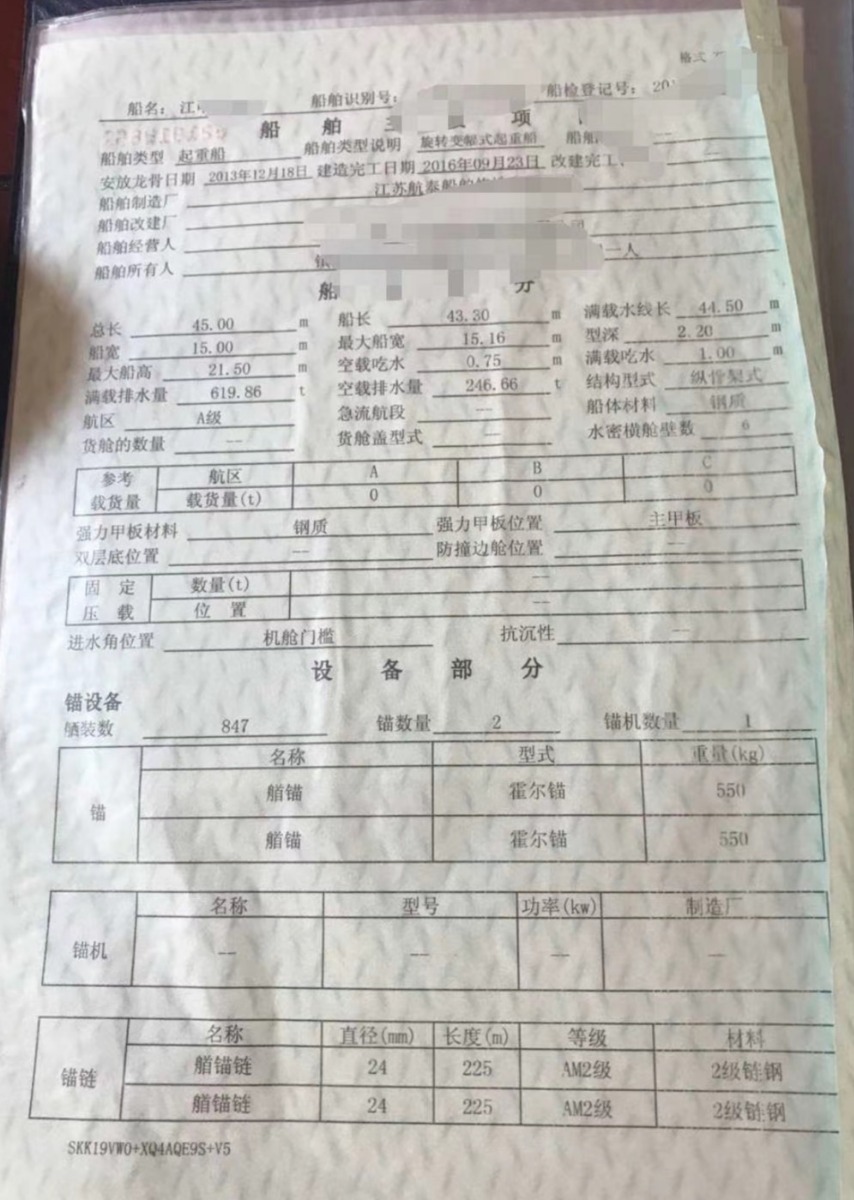 格式
船名：江 船舶识别号： 船检登记号：201
船 舶 主 要 项
船舶类型 起重船 船舶类型说明 旋转变幅式起重船 船舶 --
安放龙骨日期 2013年12月18日 建造完工日期 2016年09月23日 改建完工
船舶制造厂 江苏航泰船舶
船舶改建厂
船舶经营人
船舶所有人 一人
船 分
总长 45.00 m 船长 43.30 m 满载水线长 44.50 m
船宽 15.00 m 最大船宽 15.16 m 型深 2.20 m
最大船高 21.50 m 空载吃水 0.75 m 满载吃水 1.00 m
满载排水量 619.86 t 空载排水量 246.66 t 结构型式 纵骨架式
航区 A级 急流航段 -- 船体材料 钢质
货舱的数量 -- 货舱盖型式 -- 水密横舱壁数 6
参考 航区 A B C
载货量 载货量(t) 0 0 0
强力甲板材料 钢质 强力甲板位置 主甲板
双层底位置 -- 防撞边舱位置 --
固 定 数量(t) --
压 载 位 置 --
进水角位置 机舱门槛 抗沉性 --
设 备 部 分
锚设备
舾装数 847 锚数量 2 锚机数量 1
锚 名称 型式 重量(kg)
艏锚 霍尔锚 550
艏锚 霍尔锚 550
锚机 名称 型号 功率(kw) 制造厂
-- -- -- --
锚链 名称 直径(mm) 长度(m) 等级 材料
艏锚链 24 225 AM2级 2级链钢
艏锚链 24 225 AM2级 2级链钢
SKK19VW0+XQ4AQE9S+V5